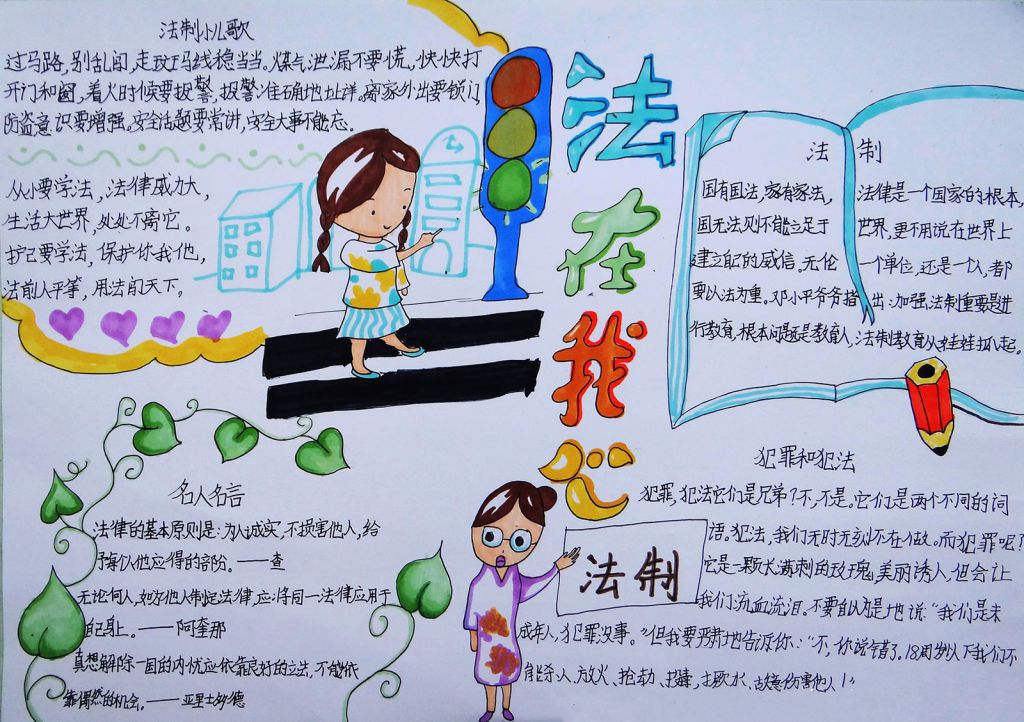 法制小儿歌
过马路,别乱闯,走斑马线稳当当。煤气泄漏不要慌,快快打
开门和窗,着火时候要报警,报警准确地址详。离家外出要锁门
防盗意识要增强。安全话题要常讲,安全大事不能忘。
从小要学法,法律威力大,
生活大世界,处处不离它。
护己要学法,保护你我他,
法前人平等,用法闯天下。
法在我心
法制
国有国法,家有家法,
国无法则不能立足于
建立起的威信。无论
要以法为重。邓小平爷爷指
行教育,根本问题还是教育人,
法律是一个国家的根本,
世界,更不用说在世界上
一个单位,还是一个人,都
出:加强法制重要是进
法制教育从娃娃抓起。
名人名言
法律的基本原则是:为人诚实,不损害他人,给
予每个人他应得的部分。——查
无论何人,如为他人制定法律,应将同一法律应用于
自己身上。——阿奎那
真想解除一国的内忧应依靠良好的立法,不能依
靠偶然的机会。——亚里士多德
法制
犯罪和犯法
犯罪,犯法它们是兄弟?不,不是。它们是两个不同的词
语。犯法,我们无时无刻不在做。而犯罪呢?
它是一颗长满刺的玫瑰,美丽诱人,但会让
我们流血流泪。不要自以为是地说:“我们是未
成年人,犯罪没事。”但我要严肃地告诉你:“不,你说错了。18周岁以下我们不
能杀人、放火、抢劫、投毒、故意伤害他人!”